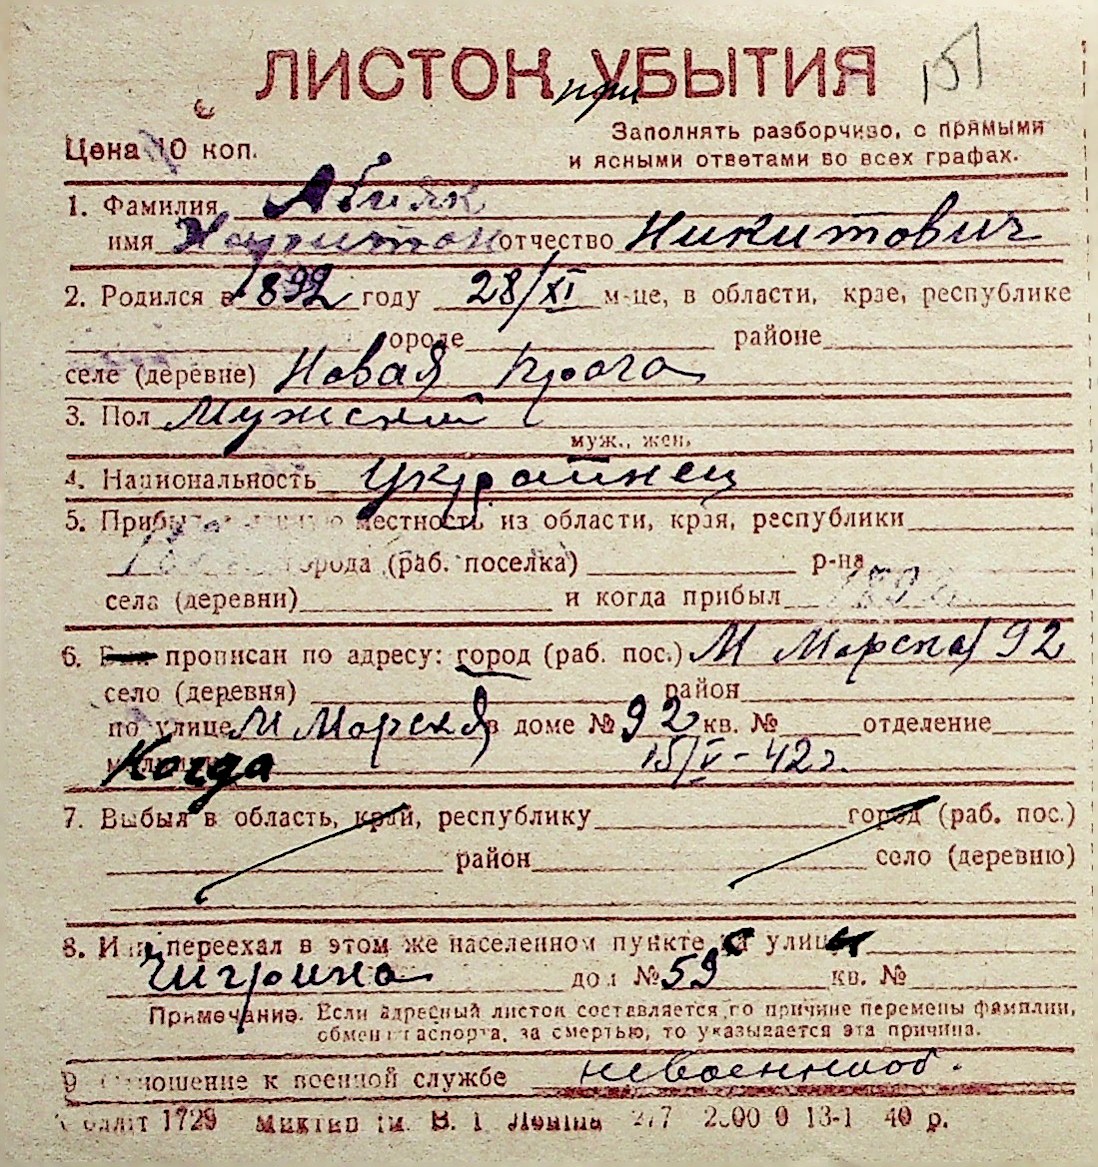 ЛИСТОК УБЫТИЯ
при
Цена 10 коп.
Заполнять разборчиво, с прямыми
и ясными ответами во всех графах.
1. Фамилия Абияк
имя Харитон отчество Никитович
2. Родился в 1892 году 28/XI м-це, в области, крае, республике
городе районе
селе (деревне) Новая Прага
3. Пол Мужской
муж., жен.
4. Национальность Украинец
5. местность из области, края, республики
города (раб. поселка) р-на
села (деревни) и когда прибыл
6. прописан по адресу: город (раб. пос.) М Морская 92
село (деревня) район
по улице М Морская в доме № 92 кв. № отделение
Когда 15/V-42г.
7. Выбыл в область, край, республику город (раб. пос.)
район село (деревню)
8. Или переехал в этом же населенном пункте с улицы
Чигрина дом № 59 кв. №
Примечание. Если адресный листок составляется по причине перемены фамилии,
обмен паспорта, за смертью, то указывается эта причина.
9 Отношение к военной службе невоеннооб.
1729 им. В. І. Леніна 40 р.